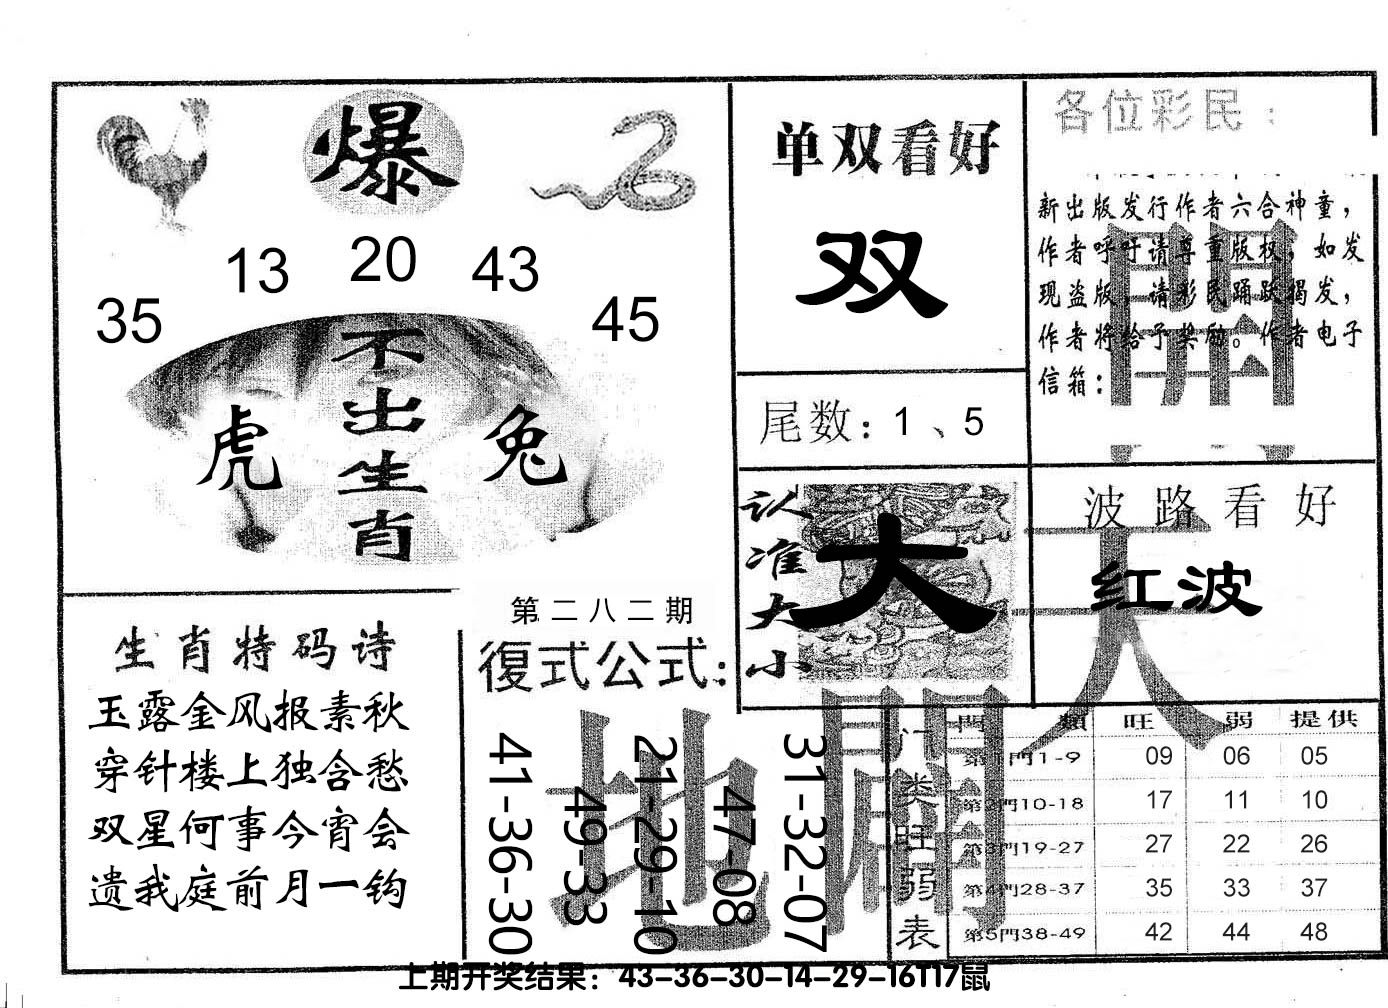 爆
13 20 43
35 45
不出生肖
虎 兔
生肖特码诗
玉露金风报素秋
穿针楼上独含愁
双星何事今宵会
遗我庭前月一钩
第二八二期
復式公式:
41-36-30
49-33
21-29-10
47-08
31-32-07
单双看好
双
尾数:1、5
认准大小
大
各位彩民:
新出版发行作者六合神童，
作者呼吁请尊重版权，如发
现盗版，请彩民踊跃揭发，
作者将给予奖励。作者电子
信箱:
開
波路看好
红波
天
地
門类旺弱表
門類 旺 弱 提供
第1門1-9 09 06 05
第2門10-18 17 11 10
第3門19-27 27 22 26
第4門28-37 35 33 37
第5門38-49 42 44 48
上期开奖结果：43-36-30-14-29-16T17鼠